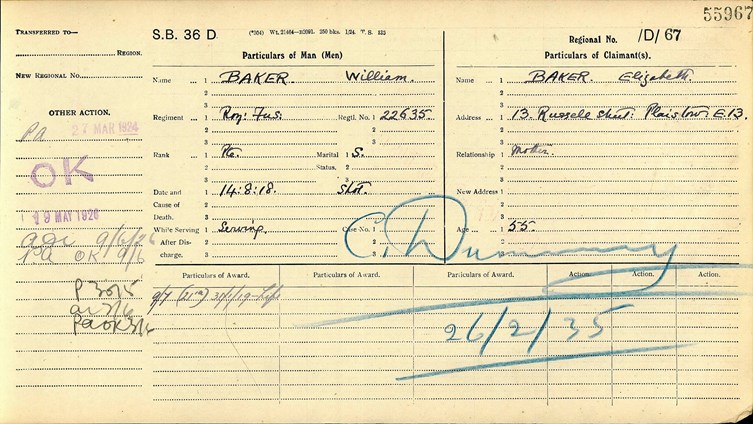 55967
TRANSFERRED TO—
REGION.
NEW REGIONAL NO.
OTHER ACTION.
27 MAR 1924
OK
19 MAY 1926
9/6/26
OK 9/6
S.B. 36 D
Regional No. /D/ 67
Particulars of Man (Men)
Particulars of Claimant(s).
Name 1 BAKER William.
2
3
Regiment 1 Roy: Fus: Regtl. No. 1 22635
2 2
3 3
Rank 1 Pte. Marital Status. 1 S.
2 2
3 3
Date and Cause of Death. 1 14:8:18. Shot.
2
3
While Serving After Discharge. 1 Serving. Case No. 1
2 2
3 3
Name 1 BAKER. Elizabeth.
2
3
Address 1 13. Russell Street: Plaistow: E.13.
2
3
Relationship 1 Mother.
2
3
New Address 1
2
3
Age 1 55.
2
3
C. Dummy
Particulars of Award. Particulars of Award. Particulars of Award. Action. Action. Action.
26/2/35